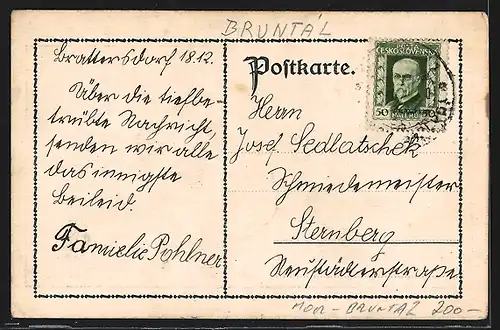 BRUNTÁL
Brattersdorf 18.12.
Über die tiefbe-
trübte Nachricht,
senden wir alle
das innigste
Beileid.
Familie Pohlner
Postkarte.
ČESKOSLOVENSKO
50
Herrn
Josef Sedlatschek
Schmiedemeister
Sternberg
Neustädterstraße
BRUNTÁL 200-